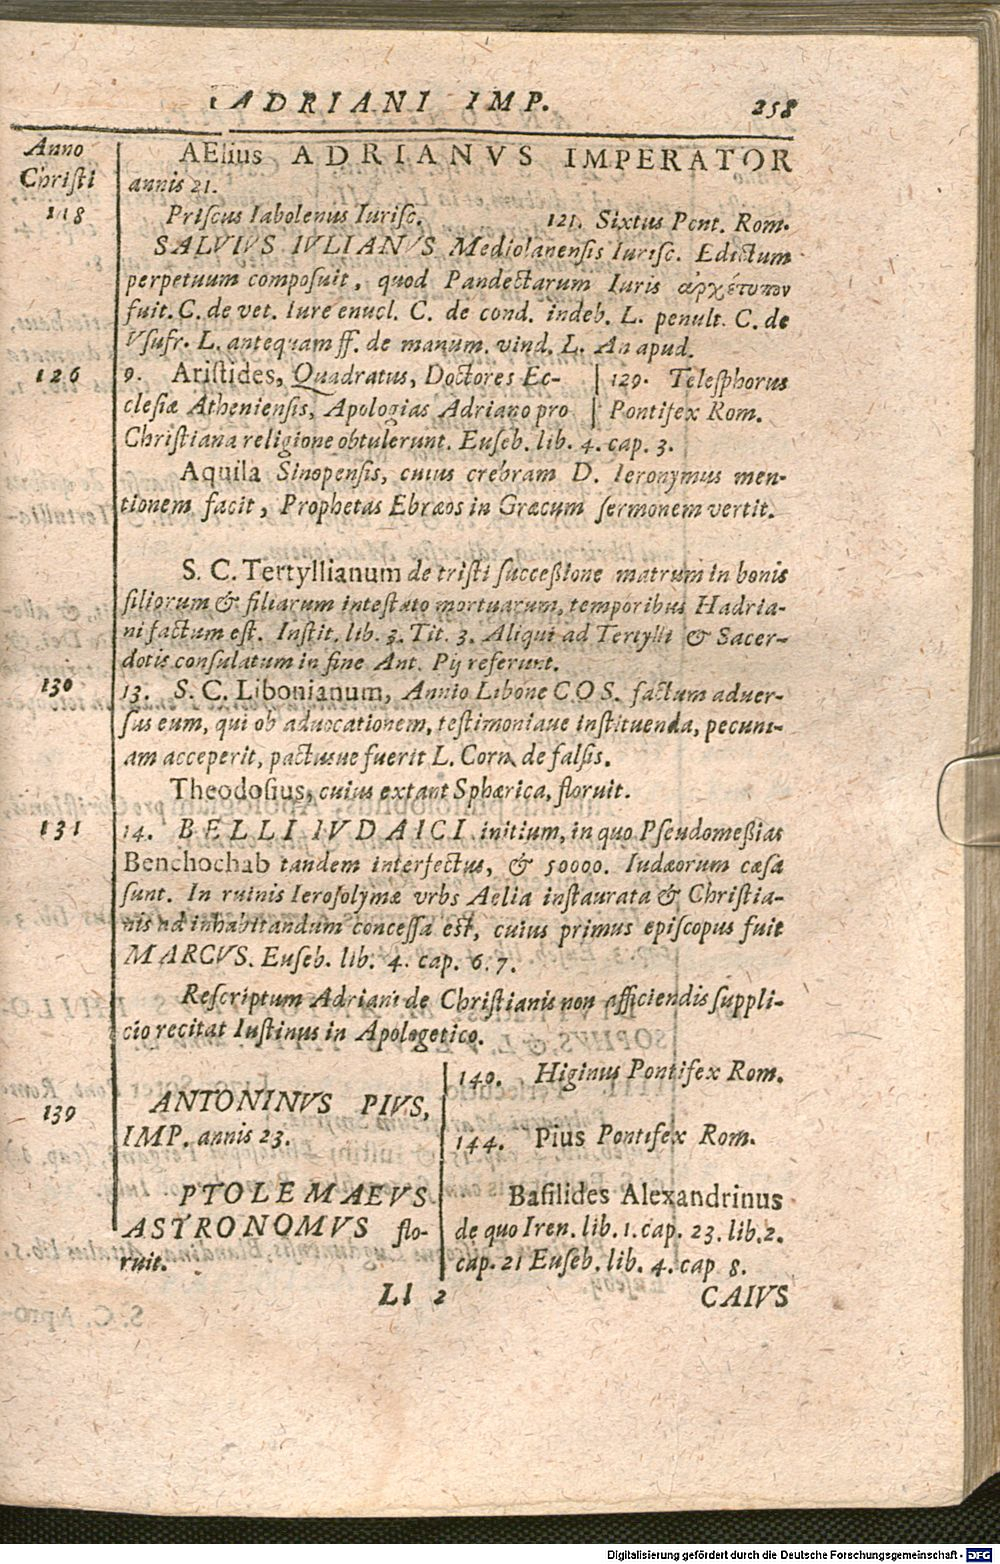 ADRIANI IMP. 258
Anno
Christi
AElius ADRIANVS IMPERATOR
annis 21.
118
Priscus Iabolenus Iurisc. 121. Sixtus Pont. Rom.
SALVIVS IVLIANVS Mediolanensis Iurisc. Edictum
perpetuum composuit, quod Pandectarum Iuris ἀρχέτυπον
fuit. C. de vet. Iure enucl. C. de cond. indeb. L. penult. C. de
Vsufr. L. antequam ff. de manum. vind. L. An apud.
126
9. Aristides, Quadratus, Doctores Ec- | 129. Telesphorus
clesiæ Atheniensis, Apologias Adriano pro | Pontifex Rom.
Christiana religione obtulerunt. Euseb. lib. 4. cap. 3.
Aquila Sinopensis, cuius crebram D. Ieronymus men-
tionem facit, Prophetas Ebræos in Græcum sermonem vertit.
S. C. Tertyllianum de tristi successione matrum in bonis
filiorum & filiarum intestato mortuarum, temporibus Hadria-
ni factum est. Instit. lib. 3. Tit. 3. Aliqui ad Tertylli & Sacer-
dotis consulatum in fine Ant. Pij referunt.
130
13. S. C. Libonianum, Annio Libone COS. factum aduer-
sus eum, qui ob aduocationem, testimoniaue instituenda, pecuni-
am acceperit, pactusue fuerit L. Corn. de falsis.
Theodosius, cuius extant Sphærica, floruit.
131
14. BELLI IVDAICI initium, in quo Pseudomessias
Benchochab tandem interfectus, & 50000. Iudæorum cæsa
sunt. In ruinis Ierosolymæ vrbs Aelia instaurata & Christia-
nis ad inhabitandum concessa est, cuius primus episcopus fuit
MARCVS. Euseb. lib. 4. cap. 6. 7.
Rescriptum Adriani de Christianis non afficiendis suppli-
cio recitat Iustinus in Apologetico.
139
ANTONINVS PIVS,
IMP. annis 23.
PTOLEMAEVS
ASTRONOMVS flo-
ruit.
140. Higinus Pontifex Rom.
144. Pius Pontifex Rom.
Basilides Alexandrinus
de quo Iren. lib. 1. cap. 23. lib. 2.
cap. 21 Euseb. lib. 4. cap 8.
Ll 2 CAIVS
Digitalisierung gefördert durch die Deutsche Forschungsgemeinschaft - DFG